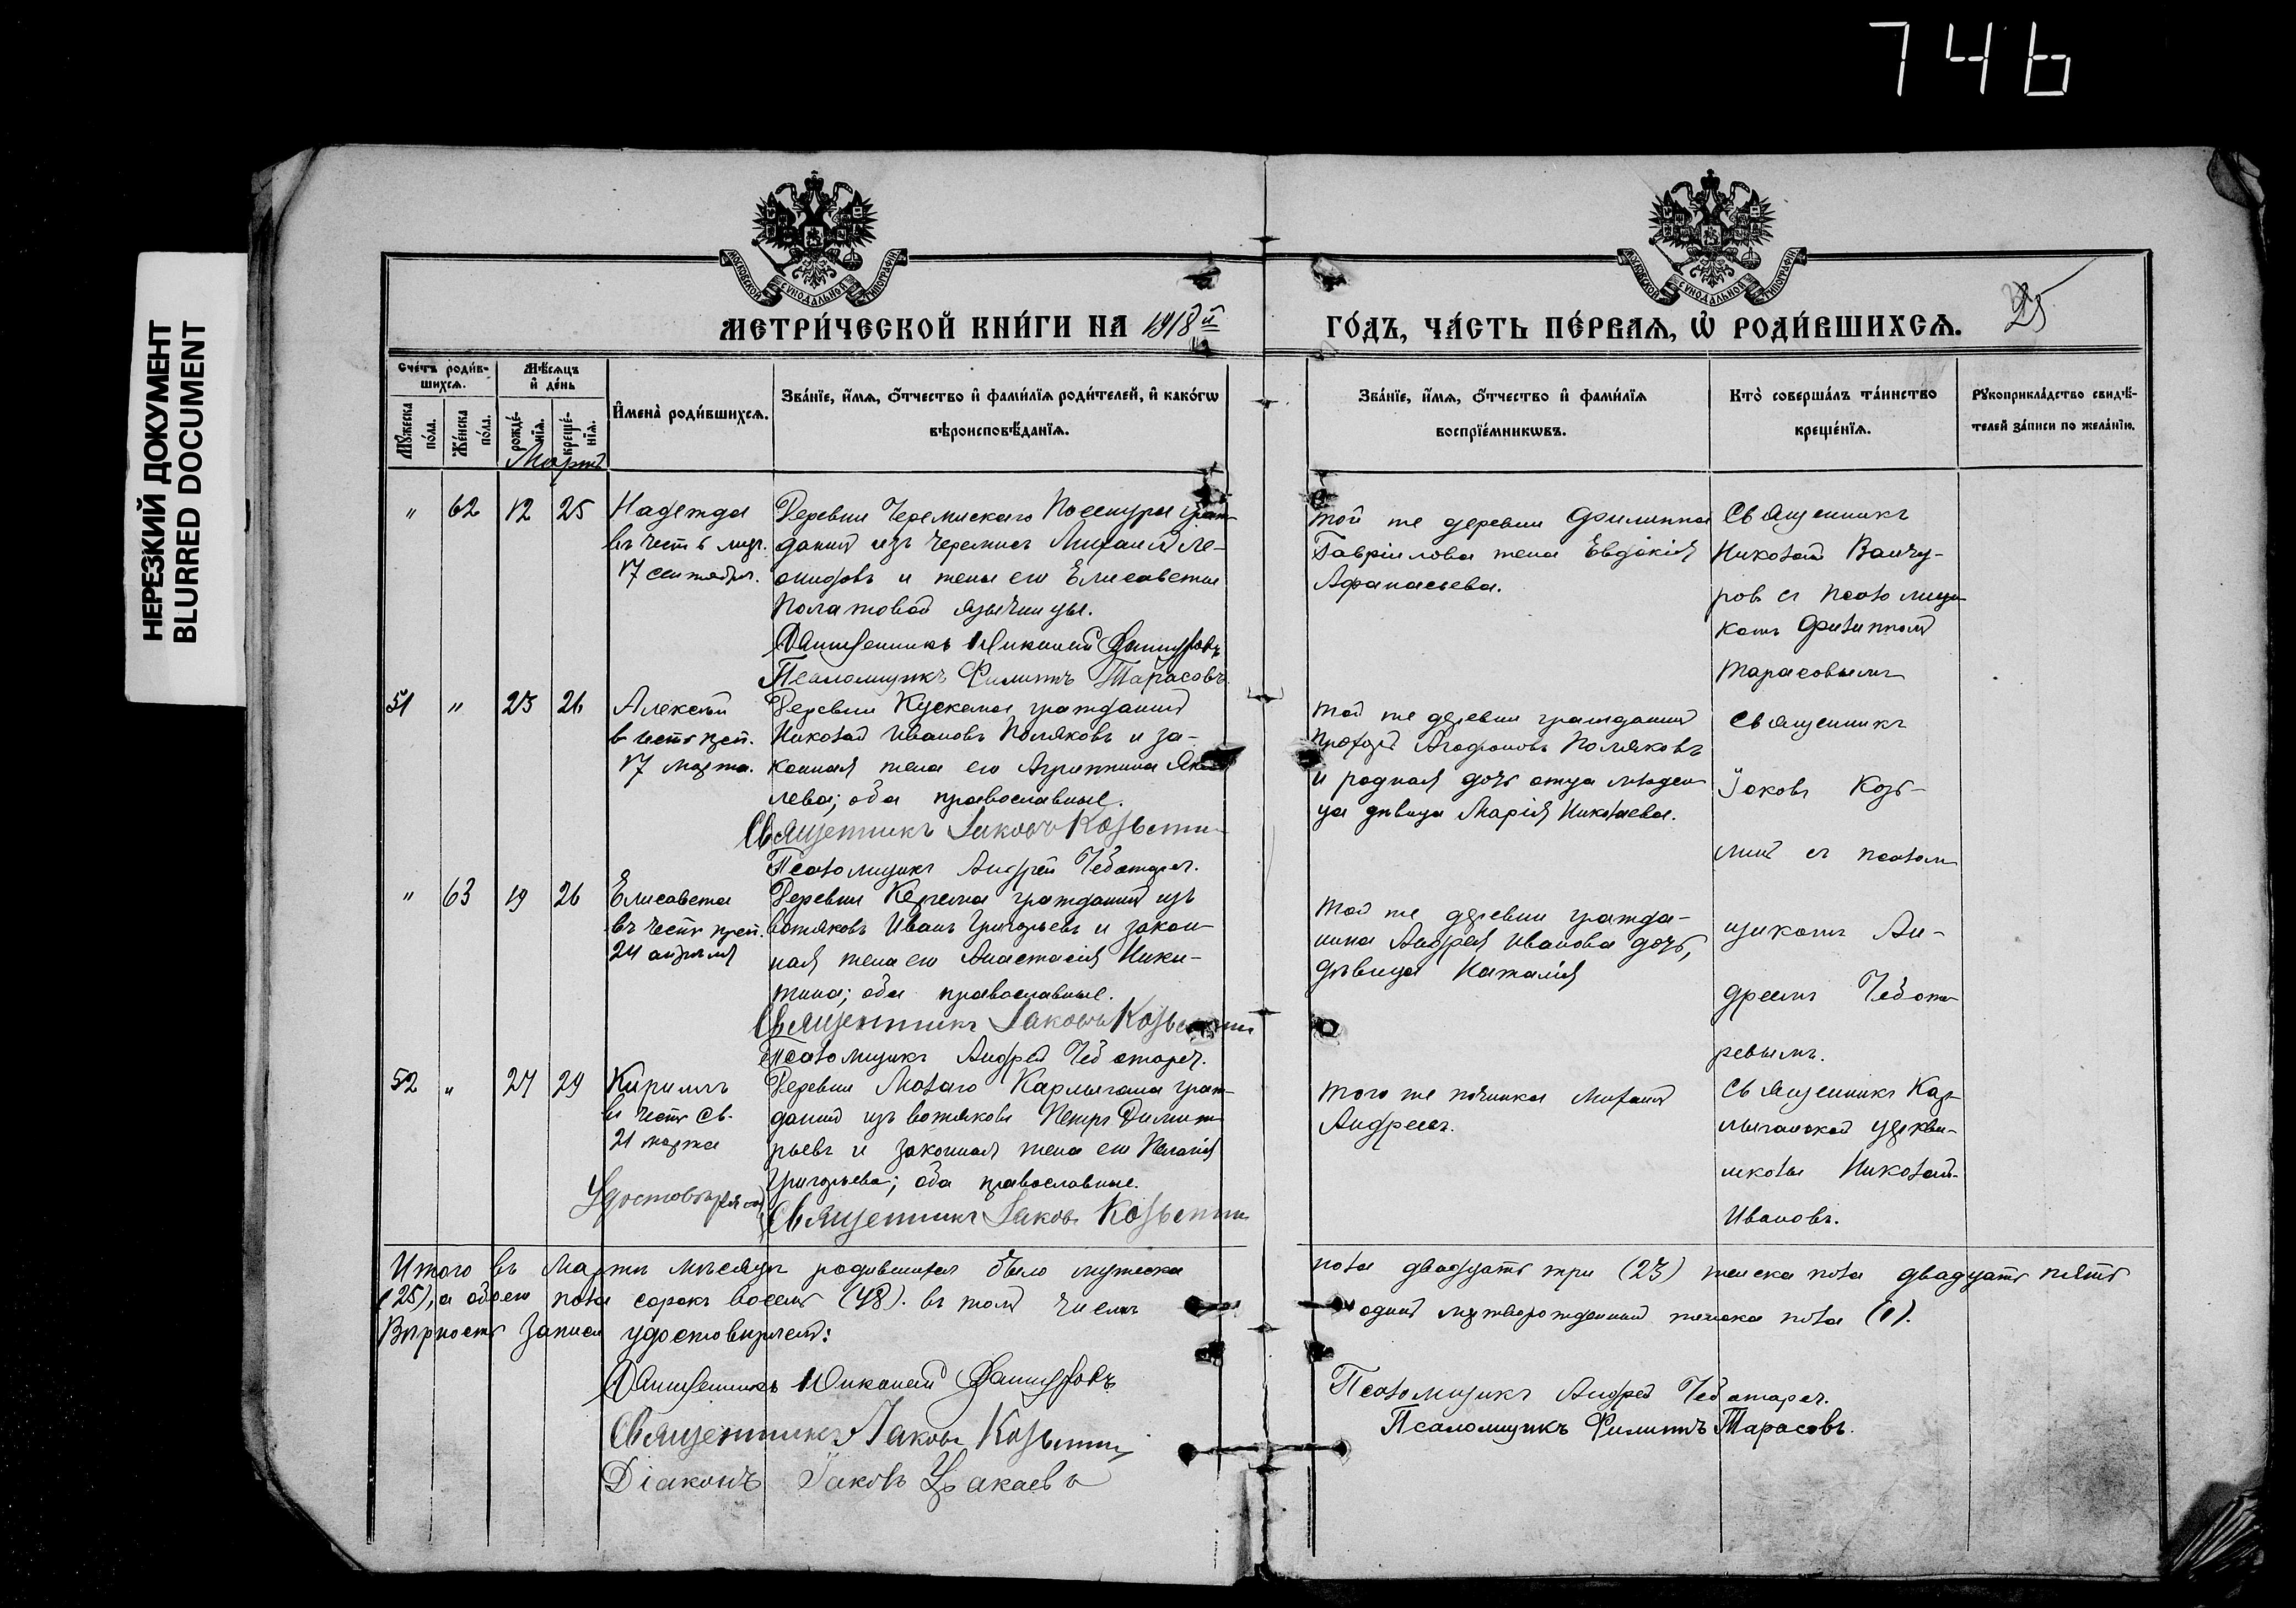 746
НЕРЕЗКИЙ ДОКУМЕНТ
BLURRED DOCUMENT
МОСКОВСКОЙ СѴНОДАЛЬНОЙ ТИПОГРАФІИ
МОСКОВСКОЙ СѴНОДАЛЬНОЙ ТИПОГРАФІИ
МЕТРИ́ЧЕСКОЙ КНИ́ГИ НА 1918й
ГО́ДЪ, ЧА́СТЬ ПЕ́РВАѦ, Ѡ҆ РОДИ́ВШИХСѦ.
25
Сче́тъ роди́в-
шихсѧ.
Мѣ́сѧцъ
и҆ де́нь
Мꙋ́жеска
по́ла.
Же́нска
по́ла.
рожде́-
нїѧ.
креще́-
нїѧ.
И҆мена̀ роди́вшихсѧ.
Зва́нїе, и҆́мѧ, ѻ҆́тчество и҆ фами́лїѧ роди́телей, и҆ како́гѡ
вѣроисповѣ́данїѧ.
Зва́нїе, и҆́мѧ, ѻ҆́тчество и҆ фами́лїѧ
воспрїе́мникѡвъ.
Кто̀ соверша́лъ та́инство
креще́нїѧ.
Рꙋкоприкла́дство свидѣ́-
телей за́писи по жела́нїю.
Мартъ
" 62 12 25 Надежда
въ честь муч.
17 сентября.
Деревни Черемискаго Посенура граж-
данинъ изъ черемисъ Михаилъ Ле-
онидовъ и жены его Елисаветы
Полатовой язычницы.
Священникъ Николай Ванчуровъ
Псаломщикъ Филиппъ Тарасовъ.
той же деревни Филиппа
Гавриилова жена Евдокія
Афанасьева.
Священникъ
Николай Ванчу-
ровъ съ псаломщи-
комъ Филиппомъ
Тарасовымъ
51 " 23 26 Алексѣй
въ честь преп.
17 марта.
Деревни Кускема гражданинъ
Николай Ивановъ Поляковъ и за-
конная жена его Агриппина Яков-
лева; оба православные.
Священникъ Іаковъ Козьминъ
Псаломщикъ Андрей Чеботарев.
той же деревни гражданинъ
Прохоръ Агафоновъ Поляковъ
и родная дочь отца младен-
ца дѣвица Марія Николаева.
Священникъ
Іаковъ Козь-
минъ съ псалом-
щикомъ Ан-
дреемъ Чебота-
ревымъ.
" 63 19 26 Елисавета
въ честь преп.
24 апрѣля
Деревни гражданинъ изъ
вотяковъ Иванъ Григорьевъ и закон-
ная жена его Анастасія Ники-
тина; оба православные.
Священникъ Іаковъ Козьминъ
Псаломщикъ Андрей Чеботарев.
той же деревни гражда-
нина Андрея Иванова дочь,
дѣвица Наталія
52 " 27 29 Кириллъ
въ честь св.
21 марта
Деревни Малаго Карлыгана граж-
данинъ изъ вотяковъ Петръ Димит-
рьевъ и законная жена его Пелагія
Григорьева; оба православные.
Удостовѣряю Священникъ Іаковъ Козьминъ
того же починка Михаилъ
Андреевъ.
Священникъ Кар-
лыганской церкви-
школы Николай
Ивановъ.
Итого въ Мартѣ мѣсяцѣ родившихся было мужеска пола двадцать три (23) женска пола двадцать пять
(25), а обоего пола сорокъ восемь (48). въ томъ числѣ одинъ мертворожденный женска пола (1).
Вѣрность записи удостовѣряемъ:
Священникъ Николай Ванчуровъ
Священникъ Іаковъ Козьминъ
Діаконъ Іаковъ
Псаломщикъ Андрей Чеботарев.
Псаломщикъ Филиппъ Тарасовъ.